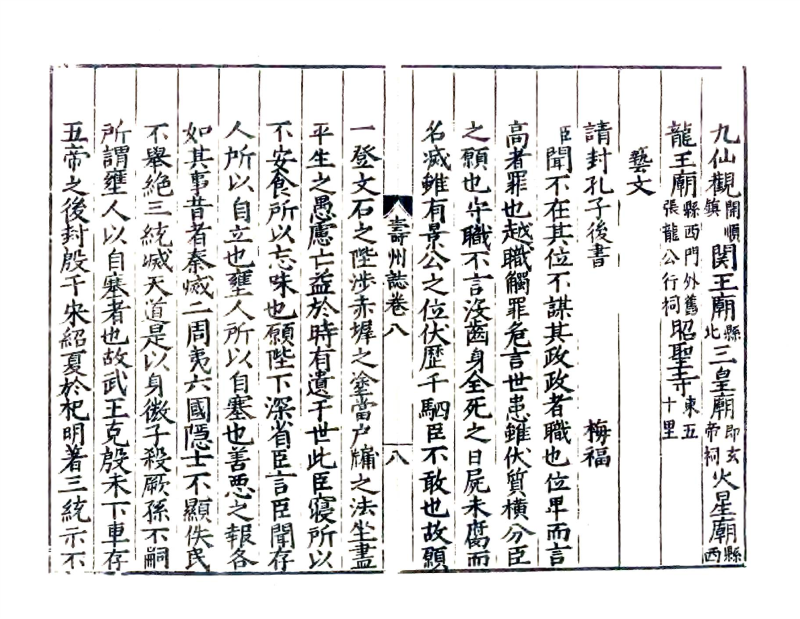 九仙觀開順鎮關王廟縣北三皇廟即玄帝祠火星廟縣西
龍王廟縣西門外舊張龍公行祠昭聖寺東五十里
藝文
請封孔子後書 梅福
臣聞不在其位不謀其政政者職也位卑而言
高者罪也越職觸罪危言世患雖伏質橫分臣
之願也守職不言沒齒身全死之日屍未腐而
名滅雖有景公之位伏歷千駟臣不敢也故願
壽州誌卷八 八
一登文石之陛涉赤墀之塗當户牖之法坐盡
平生之愚慮亡益於時有遺于世此臣寢所以
不安食所以忘味也願陛下深省臣言臣聞存
人所以自立也壅人所以自塞也善惡之報各
如其事昔者秦滅二周夷六國隱士不顯佚民
不舉絶三統滅天道是以身微子殺厥孫不嗣
所謂壅人以自塞者也故武王克殷未下車存
五帝之後封殷于宋紹夏於杞明著三統示不